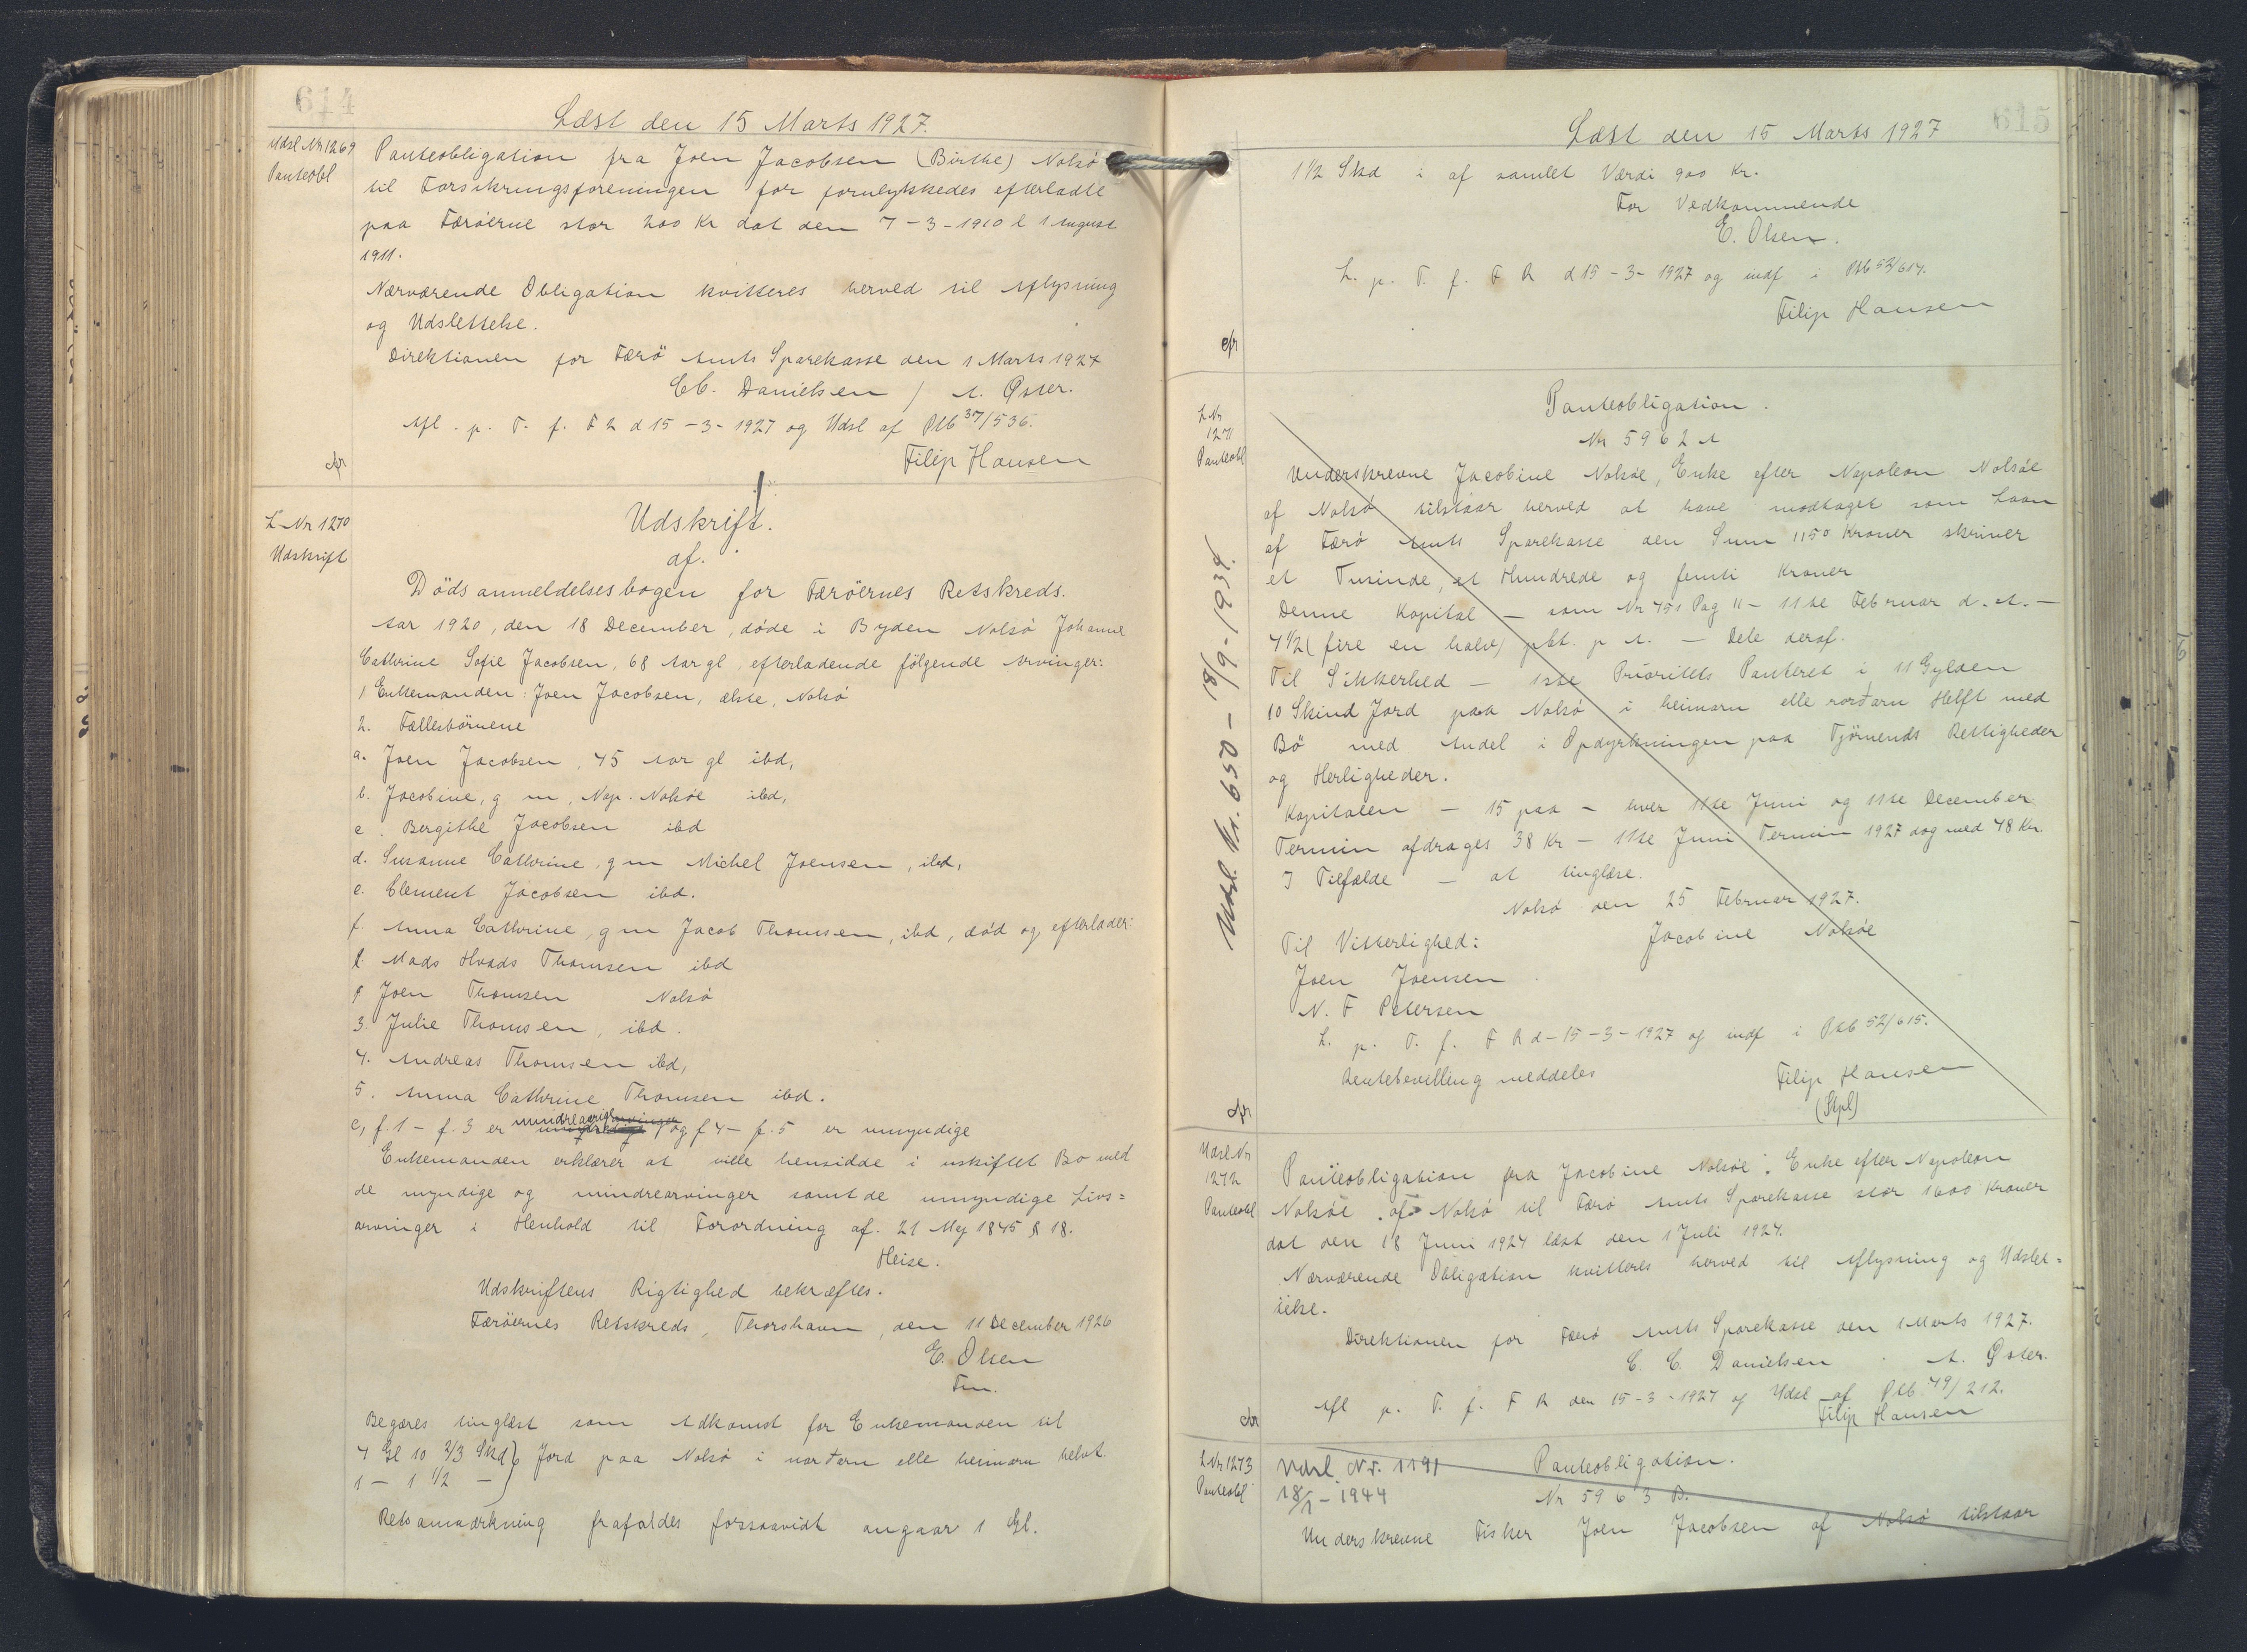 614
Læst den 15 Marts 1927.
Udsl Nr 1269
Panteobl
Panteobligation fra Joen Jacobsen (Birthe) Nolsö
til Forsikringsforeningen for forulykkedes efterladte
paa Færöerne stor 200 Kr dat den 7-3-1910 l 1 August
1911.
Nærværende Obligation kvitteres herved til Aflysning
og Udslettelse.
Direktionen for Færö Amts Sparekasse den 1 Marts 1927
C.C. Danielsen / A. Øster.
Afl. p. T. f. F R d 15-3-1927 og Udsl af Ptb 37/536.
Filip Hansen
L Nr 1270
Udskrift
Udskrift.
af.
Dödsanmeldelsesbogen for Færöernes Retskreds.
Aar 1920, den 18 December, døde i Bygden Nolsö Johanne
Cathrine Sofie Jacobsen, 68 Aar gl, efterladende følgende Arvinger:
1 Enkemanden: Joen Jacobsen, ælste, Nolsö
2. Fællesbörnene
a. Joen Jacobsen, 45 Aar gl ibd,
b. Jacobine, g m, Nap. Nolsöe ibd,
c. Bergithe Jacobsen ibd
d. Susanne Cathrine, g m Michel Joensen, ibd,
e. Clement Jacobsen ibd.
f. Anna Cathrine, g m Jacob Thomsen, ibd, død og efterlader:
1. Mads Thomsen ibd
2 Joen Thomsen Nolsö
3. Julie Thomsen, ibd.
4. Andreas Thomsen ibd,
5. Anna Cathrine Thomsen ibd.
e, f. 1 - f. 3 er mindreaarige og f 4 - f. 5 er umyndige
Enkemanden erklærer at ville hensidde i uskiftet Bo med
de myndige og mindrearvinger samt de umyndige Livs=
arvinger i Henhold til Forordning af. 21 Mej 1845 § 18.
Heise.
Udskriftens Rigtighed bekræftes.
Færöernes Retskreds, Thorshavn, den 11 December 1926
E. Olsen
Fm.
Begæres tinglæst som Adkomst for Enkemanden til
4 Gl 10 2/3 Skd } Jord paa Nolsö i norðaru elle heimaru helvt.
1 - 1 1/2 -
Retsanmærkning frafaldes forsaavidt angaar 1 Gl.
615
Læst den 15 Marts 1927
1 1/2 Skd i af samlet Værdi 900 Kr.
For Vedkommende
E. Olsen.
L. p. T. f. F R d 15-3-1927 og indf i Ptb 52/614.
Filip Hansen
L Nr
1271
Panteobl
Panteobligation.
Nr 5962 A
Underskrevne Jacobine Nolsøe, Enke efter Napoleon Nolsöe
af Nolsö tilstaar herved at have modtaget som Laan
af Færö Amts Sparekasse den Sum 1150 Kroner skriver
et Tusinde, et Hundrede og femti Kroner
Denne Kapital - som Nr 751 Pag 11 - 11te Februar d. A. -
4 1/2 (fire en halv) pct. p A. - Dele deraf.
Til Sikkerhed - 1ste Prioritets Panteret i 11 Gylden
10 Skind Jord paa Nolsö i heimaru elle norðaru Helft med
Bö med Andel i Opdyrkningen paa Tjörnends Rettigheder
og Herligheder.
Kapitalen - 15 paa - hver 11te Juni og 11te December
Termin afdrages 38 Kr - 11te Juni Termin 1927 dog med 48 Kr.
I Tilfælde - at tinglæse.
Nolsö den 25 Februar 1927.
Til Vitterlighed: Jacobine Nolsöe
Joen Joensen
N. F Petersen
L. p. T. f. F R d-15-3-1927 og indf i Ptb 52/615.
Rentebevilling meddeles Filip Hansen
(Stpl)
Udsl. Kr. 650 - 18/9-1934.
Udsl Nr
1272
Panteobl
Panteobligation fra Jacobine Nolsöe. Enke efter Napoleon
Nolsöe af Nolsö til Færö Amts Sparekasse stor 1600 Kroner
dat den 18 Juni 1924 læst den 1 Juli 1924.
Nærværende Obligation kvitteres herved til Aflysning og Udslet=
telse.
Direktionen for Færö Amts Sparekasse den 1 Marts 1927.
C. C. Danielsen A. Øster.
Afl p. T. f. F R den 15-3-1927 og Udsl af Ptb. 49/212.
Filip Hansen
L Nr 1273
Panteobl
Udsl. Nr. 1191
18/1-1944
Panteobligation.
Nr 5963 B.
Underskrevne Fisker Joen Jacobsen af Nolsö tilstaar